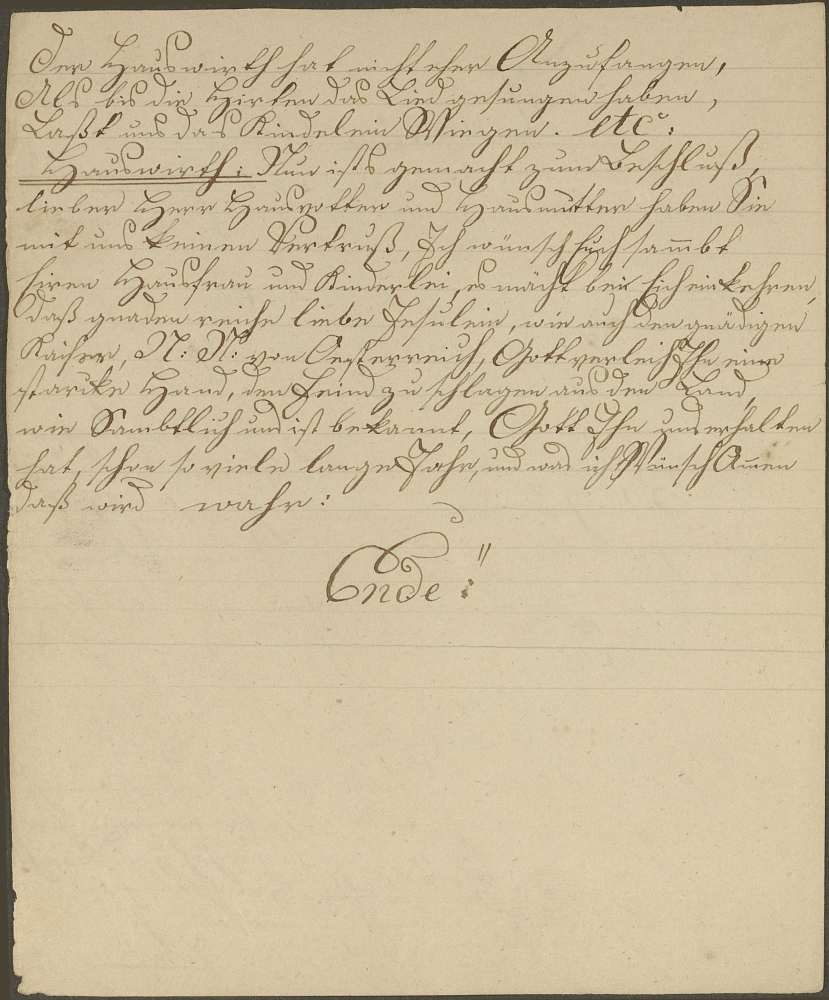 Der Hauswirth hat nicht eher Anzufangen,
Als bis die Hirten das Lied gesungen haben,
Laßt uns das Kindelein Wiegen. etc:
Hauswirth: Nun ists gemacht zum Beschluß,
lieber Herr Hausvotter und Hausmutter haben Sie
mit uns keinen Vertruß, Ich wünsch Euch sambt
Eiren Hausfrau und Kinderlei, es mächt bei Eich einkehren,
daß gnaden reiche liebe Jesulein, wie auch den gnädigen
Kaiser, N: N: von Oesterreich, Gott verleih Ihn eine
starcke Hand, den Feind zu schlagen aus den Land,
wie Sambtlich uns ist bekannt, Gott Ihn uns erhalten
hat, schon so viele lange Jahr, und was ich Wünsch Amen
daß wird wahr:
Ende: